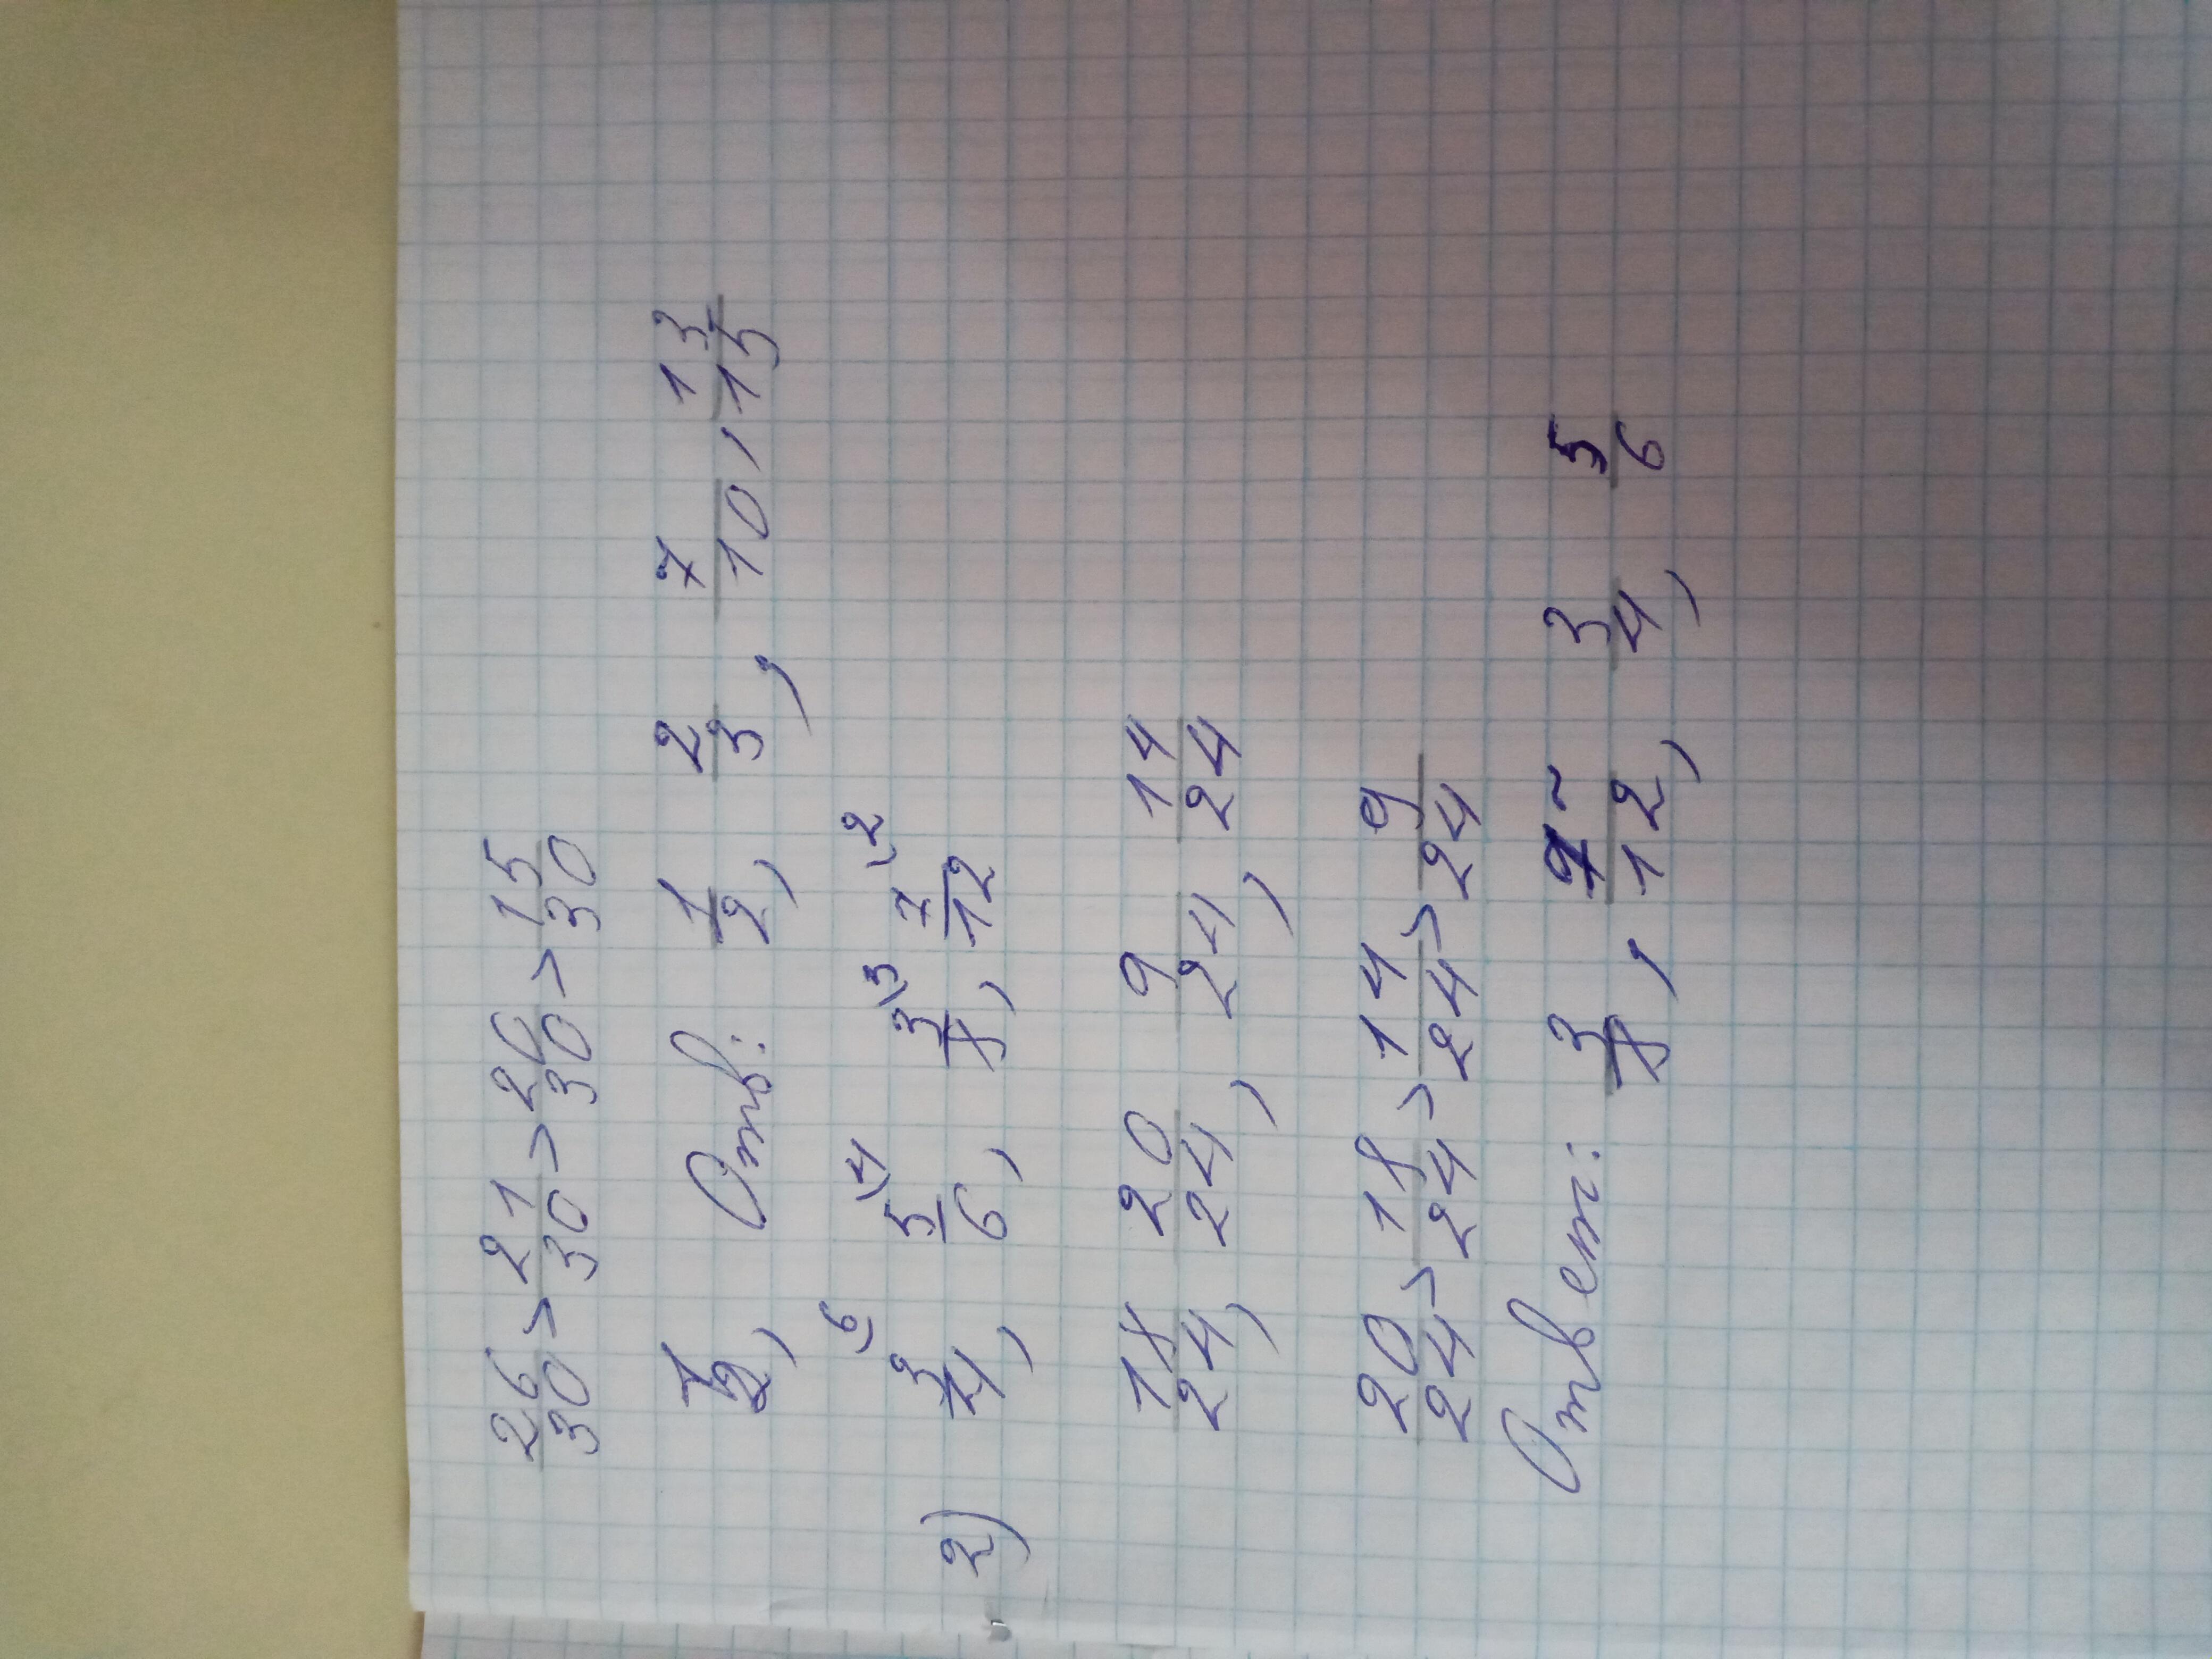 26/30 > 21/30 > 20/30 > 15/30
1/2, Отв: 1/2, 2/3, 7/10, 13/15
2) 3/4 \6, 5/6 \4, 3/8 \3, 7/12 \2
18/24, 20/24, 9/24, 14/24
20/24 > 18/24 > 14/24 > 9/24
Ответ: 3/8, 7/12, 3/4, 5/6